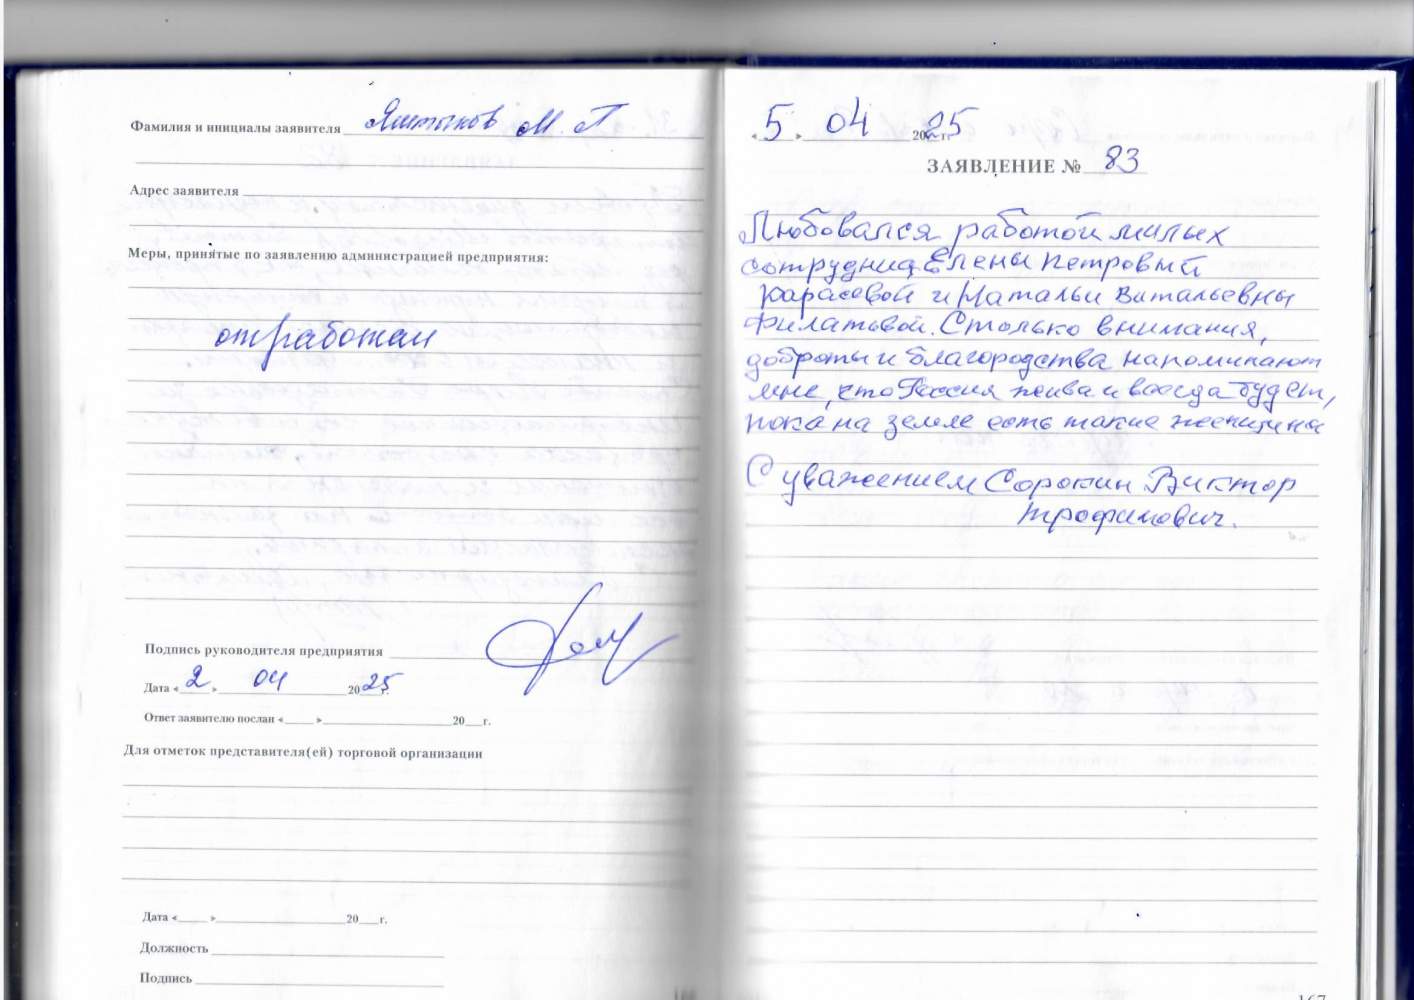 Фамилия и инициалы заявителя Яштыков М. П
Адрес заявителя
Меры, принятые по заявлению администрацией предприятия:
отработан
Подпись руководителя предприятия
Дата « 2 » 04 2025 г.
Ответ заявителю послан « » 20 г.
Для отметок представителя(ей) торговой организации
Дата « » 20 г.
Должность
Подпись
« 5 » 04 2025 г.
ЗАЯВЛЕНИЕ № 83
Любовался работой милых
сотрудниц Елены Петровны
Карасевой и Натальи Витальевны
Филатовой. Столько внимания,
доброты и благородства напоминают
мне, что Россия жива и всегда будет,
пока на земле есть такие женщины
С уважением Сорокин Виктор
Трофимович.
167